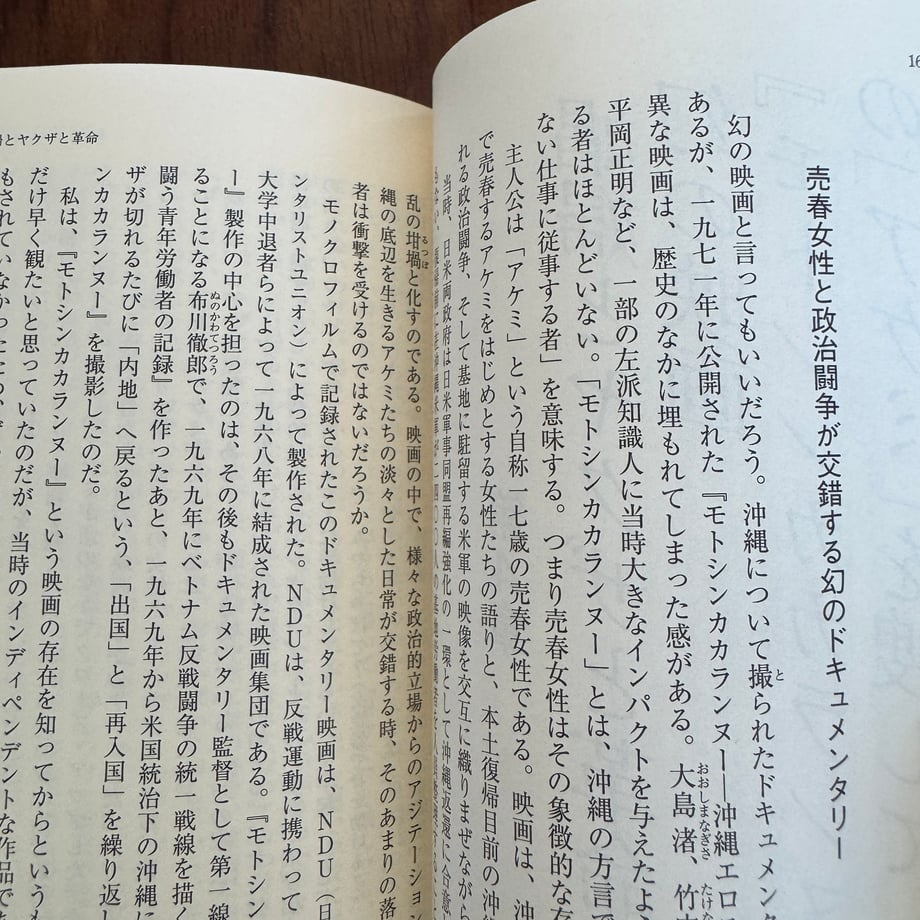 16
売春女性と政治闘争が交錯する幻のドキュメンタリー
幻の映画と言ってもいいだろう。沖縄について撮られたドキュメン
あるが、一九七一年に公開された『モトシンカカランヌー―沖縄エロ
異な映画は、歴史のなかに埋もれてしまった感がある。大島渚、竹
平岡正明など、一部の左派知識人に当時大きなインパクトを与えたよ
る者はほとんどいない。「モトシンカカランヌー」とは、沖縄の方言で
ない仕事に従事する者」を意味する。つまり売春女性はその象徴的な存
主人公は「アケミ」という自称一七歳の売春女性である。映画は、沖
で売春するアケミをはじめとする女性たちの語りと、本土復帰目前の沖縄
れる政治闘争、そして基地に駐留する米軍の映像を交互に織りまぜながら
当時、日米両政府は日米軍事同盟再編強化の一環として沖縄返還に合意
場とヤクザと革命
乱の坩堝と化すのである。映画の中で、様々な政治的立場からのアジテーション
縄の底辺を生きるアケミたちの淡々とした日常が交錯する時、そのあまりの落
者は衝撃を受けるのではないだろうか。
モノクロフィルムで記録されたこのドキュメンタリー映画は、NDU（日
ンタリストユニオン）によって製作された。NDUは、反戦運動に携わって
大学中退者らによって一九六八年に結成された映画集団である。『モトシン
ー』製作の中心を担ったのは、その後もドキュメンタリー監督として第一線
ることになる布川徹郎で、一九六九年にベトナム反戦闘争の統一戦線を描く
闘う青年労働者の記録』を作ったあと、一九六九年から米国統治下の沖縄に
ザが切れるたびに「内地」へ戻るという、「出国」と「再入国」を繰り返し
ンカカランヌー』を撮影したのだ。
私は、『モトシンカカランヌー』という映画の存在を知ってからというも
だけ早く観たいと思っていたのだが、当時のインディペンデントな作品であ
もされていなかったため、